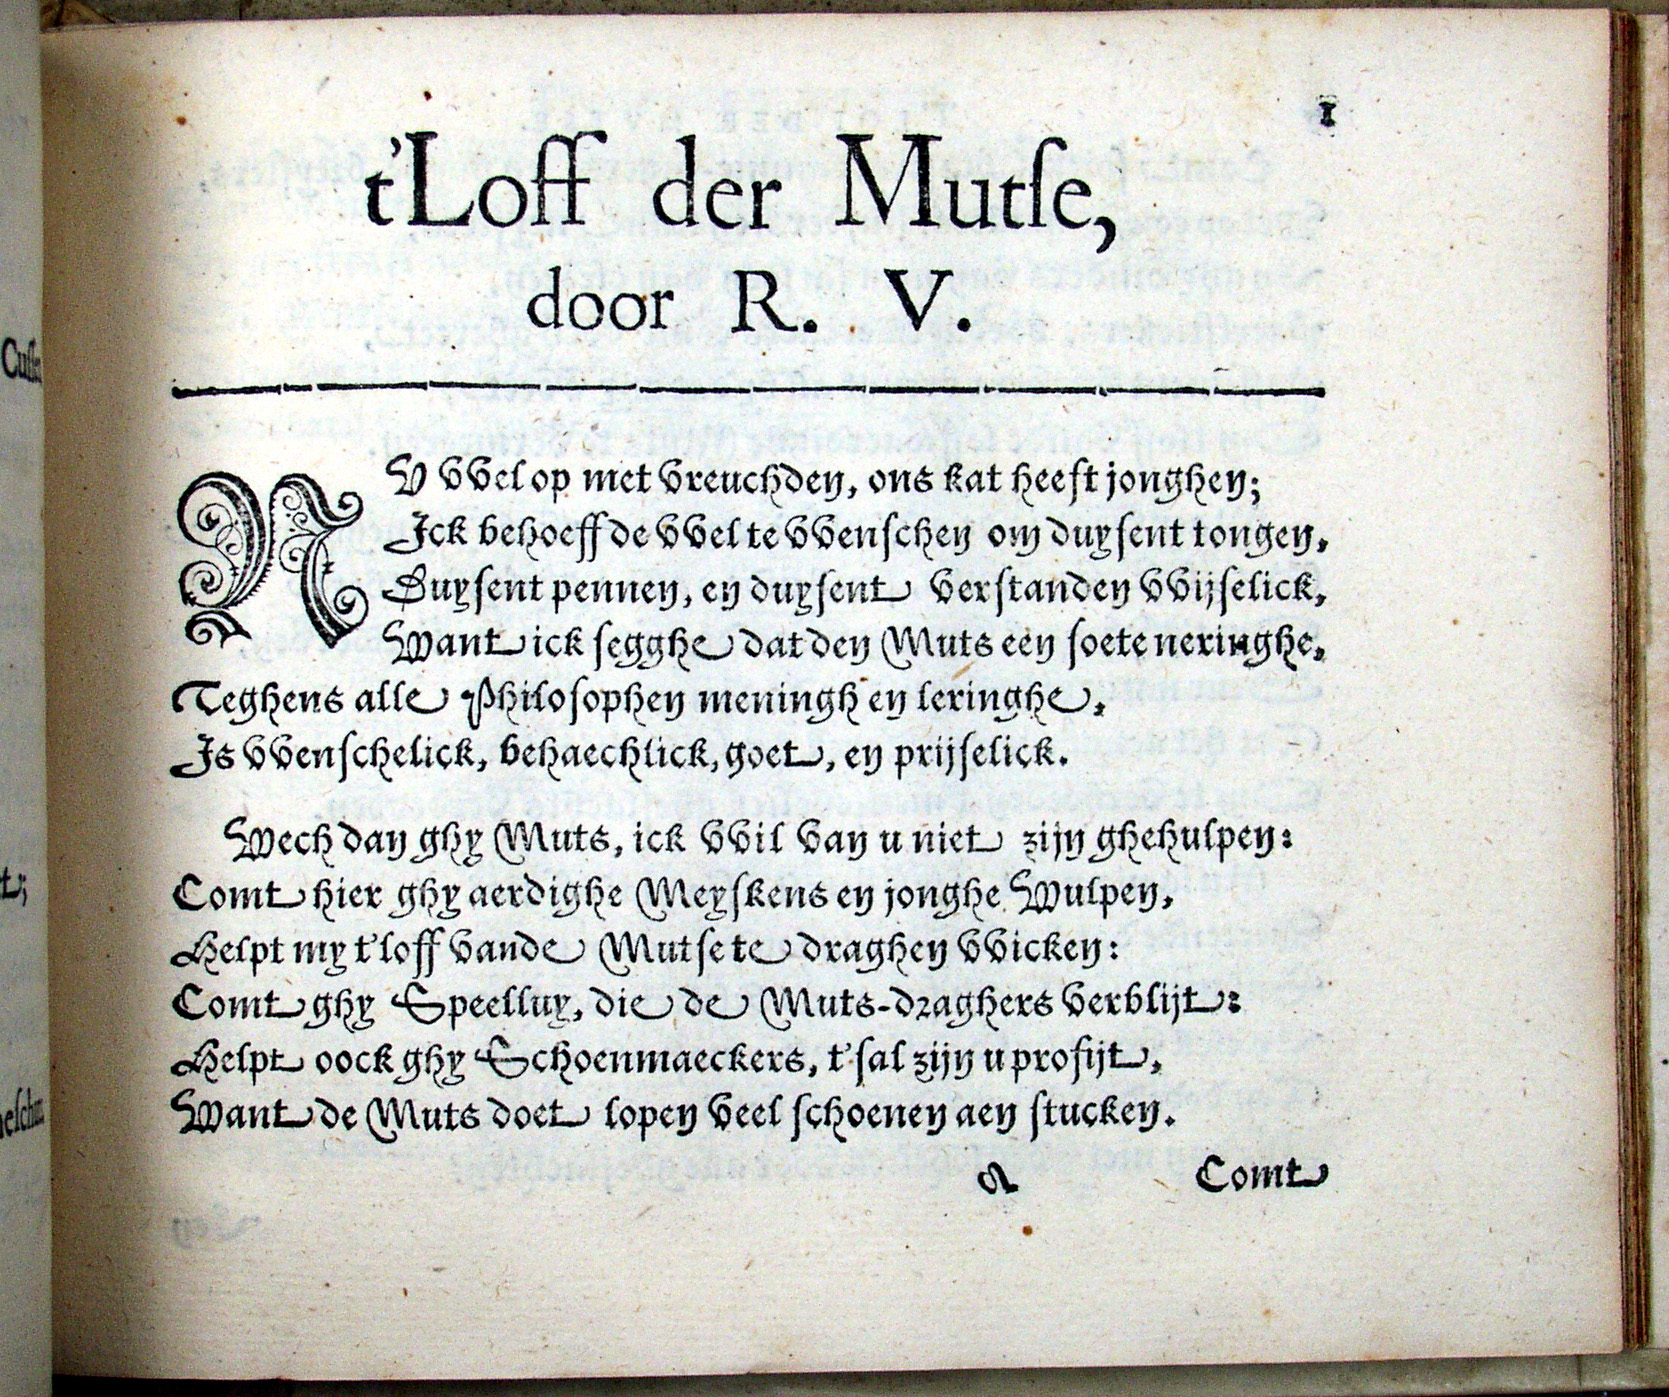 1
t'Loff der Mutſe,
door R. V.
NV vvel op met vreuchden, ons kat heeft jonghen;
Ick behoeffde vvel te vvenſchen om duyſent tongen,
Duyſent pennen, en duyſent verſtanden vvijſelick,
Want ick ſegghe dat den Muts een ſoete neringhe,
Teghens alle Philoſophen meningh en leringhe,
Is vvenſchelick, behaechlick, goet, en prijſelick.
Wech dan ghy Muts, ick vvil van u niet zijn ghehulpen:
Comt hier ghy aerdighe Meyſkens en jonghe Wulpen,
Helpt my t'loff vande Mutſe te draghen vvicken:
Comt ghy Speelluy, die de Muts-draghers verblijt:
Helpt oock ghy Schoenmaeckers, t'ſal zijn u profijt,
Want de Muts doet lopen veel ſchoenen aen ſtucken.
a Comt